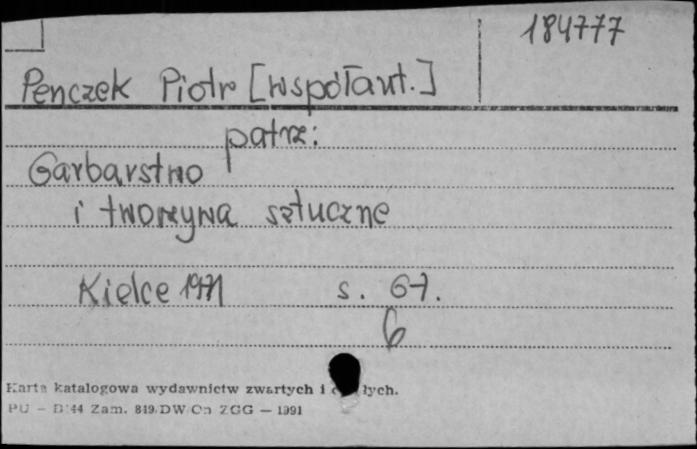 184777
Penczek Piotr [współaut.]
patrz:
Garbarstwo
i tworzywa sztuczne
Kielce 1971 s. 67.
6
Karta katalogowa wydawnictw zwartych i lych.
PU – D/44 Zam. 819 DW Cn ZGG — 1991